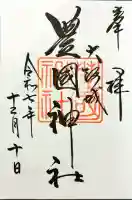 奉拝
大阪城
豊國神社
令和七年
十二月十日